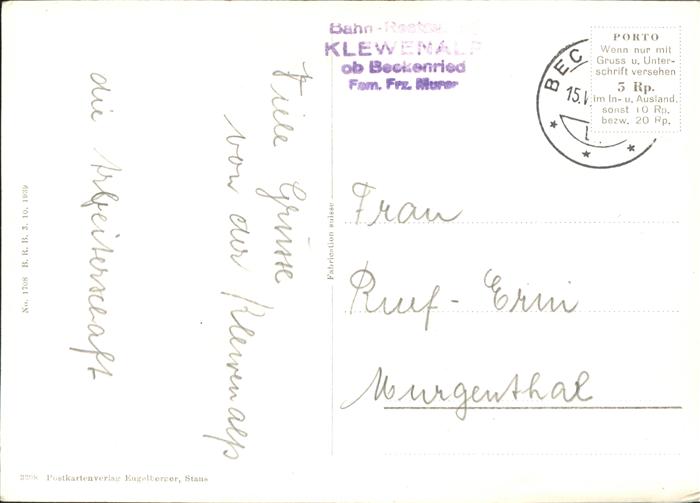 Bahn-
KLEWENALP
ob Beckenried
Fam. Frz. Murer
BEC
15.V
PORTO
Wenn nur mit
Gruss u. Unter-
schrift versehen
5 Rp.
im In- u. Ausland,
sonst 10 Rp.
bezw. 20 Rp.
Viele Grüsse
von der Klewenalp
die Arbeiterschaft
Frau
Ruef-Erni
Murgenthal
Fabrication suisse
No. 1708 B. R. B. 3. 10. 1939
Postkartenverlag Engelberger, Stans